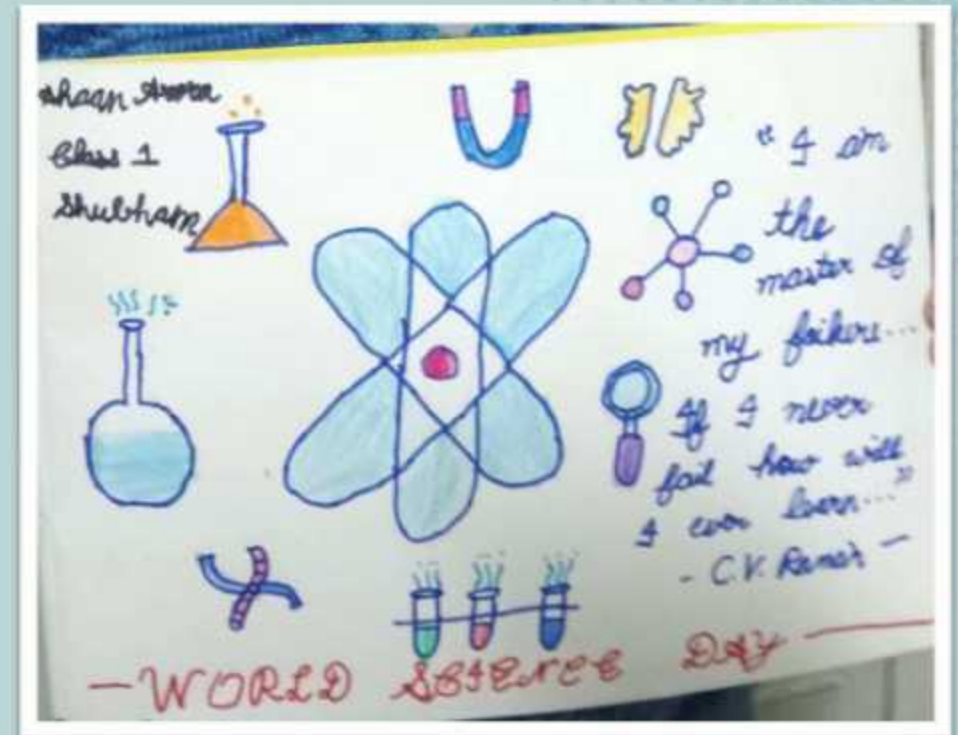 Shaan Arora
Class 1
Shubham
" I am
the
master of
my failure...
If I never
fail how will
I ever learn..."
- C.V. Raman -
- WORLD SCIENCE DAY -